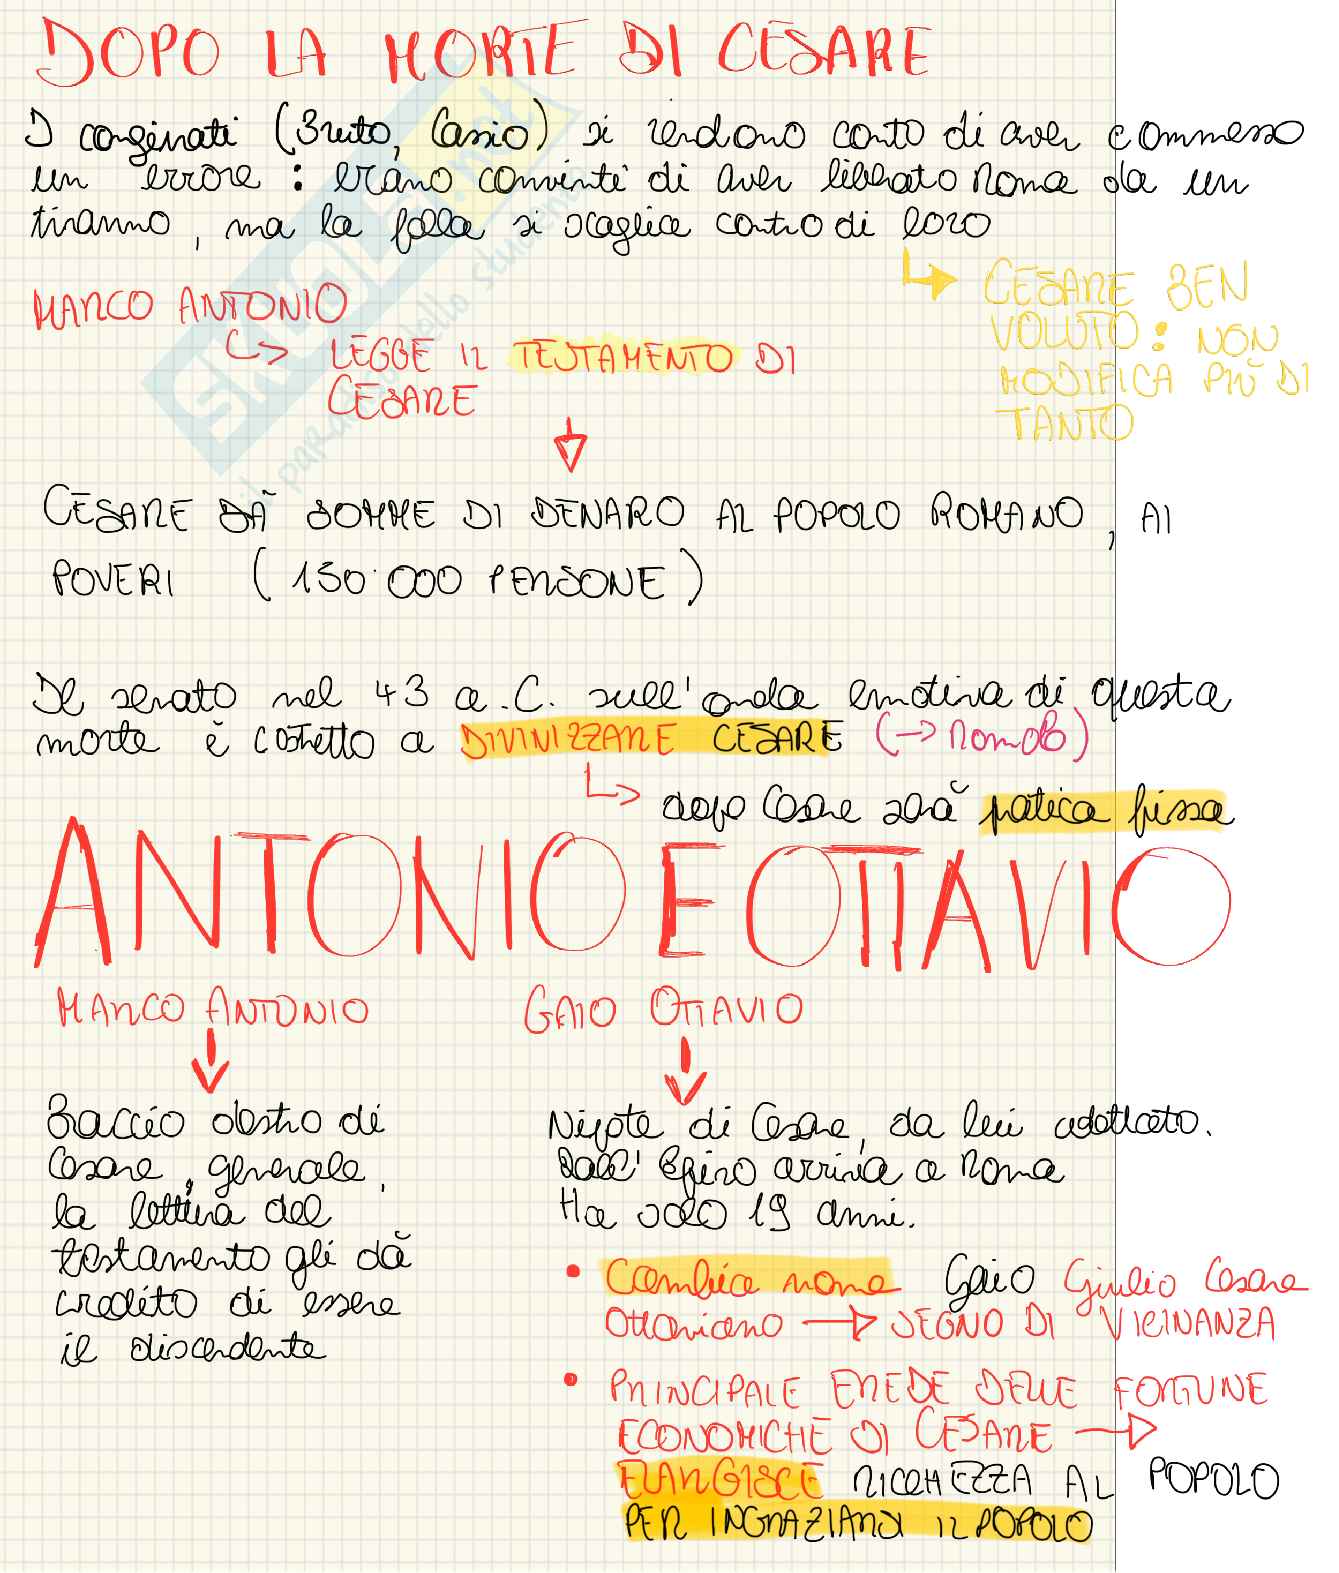 DOPO LA MORTE DI CESARE
I congiurati (Bruto, Cassio) si rendono conto di aver commesso
un errore : erano convinti di aver liberato Roma da un
tiranno, ma la folla si scaglia contro di loro
CESARE BEN
VOLUTO : NON
MODIFICA PIÙ DI
TANTO
MARCO ANTONIO
LEGGE IL TESTAMENTO DI
CESARE
CESARE DÀ SOMME DI DENARO AL POPOLO ROMANO, AI
POVERI (150.000 PERSONE)
Il senato nel 43 a.C. sull'onda emotiva di questa
morte è costretto a DIVINIZZARE CESARE (→ Romolo)
dopo Cesare sarà pratica fissa
ANTONIO E OTTAVIO
MARCO ANTONIO
Braccio destro di
Cesare, generale,
la lettura del
testamento gli dà
credito di essere
il discendente
GAIO OTTAVIO
Nipote di Cesare, da lui adottato.
Dall'Epiro arriva a Roma
Ha solo 19 anni.
• Cambia nome Gaio Giulio Cesare
Ottaviano → SEGNO DI VICINANZA
• PRINCIPALE EREDE DELLE FORTUNE
ECONOMICHE DI CESARE →
ELARGISCE RICCHEZZA AL POPOLO
PER INGRAZIARSI IL POPOLO
SKUOLA.net
il paradiso dello studente